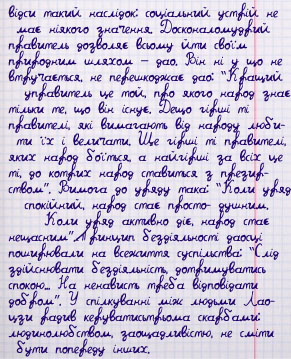 відси такий наслідок: соціальний устрій не
має ніякого значення. Досконаломудрий
правитель дозволяє всьому йти своїм
природним шляхом – дао. Він ні у що не
втручається, не перешкоджає дао: "Кращий
управитель це той, про якого народ знає
тільки те, що він існує. Дещо гірші ті
правителі, які вимагають від народу люби-
ти їх і величати. Ще гірші ті правителі,
яких народ боїться, а найгірші за всіх це
ті, до котрих народ ставиться з презир-
ством". Вимога до уряду така: "Коли уряд
спокійний, народ стає просто- душним.
Коли уряд активно діє, народ стає
нещасним". Принцип бездіяльності даосці
поширювали на все життя суспільства: "Слід
здійснювати бездіяльність, дотримуватись
спокою... На ненависть треба відповідати
добром". У спілкуванні між людьми Лао-
цзи радив керуватисьтрьома скарбами:
людинолюбством, заощадливістю, не сміти
бути попереду інших.